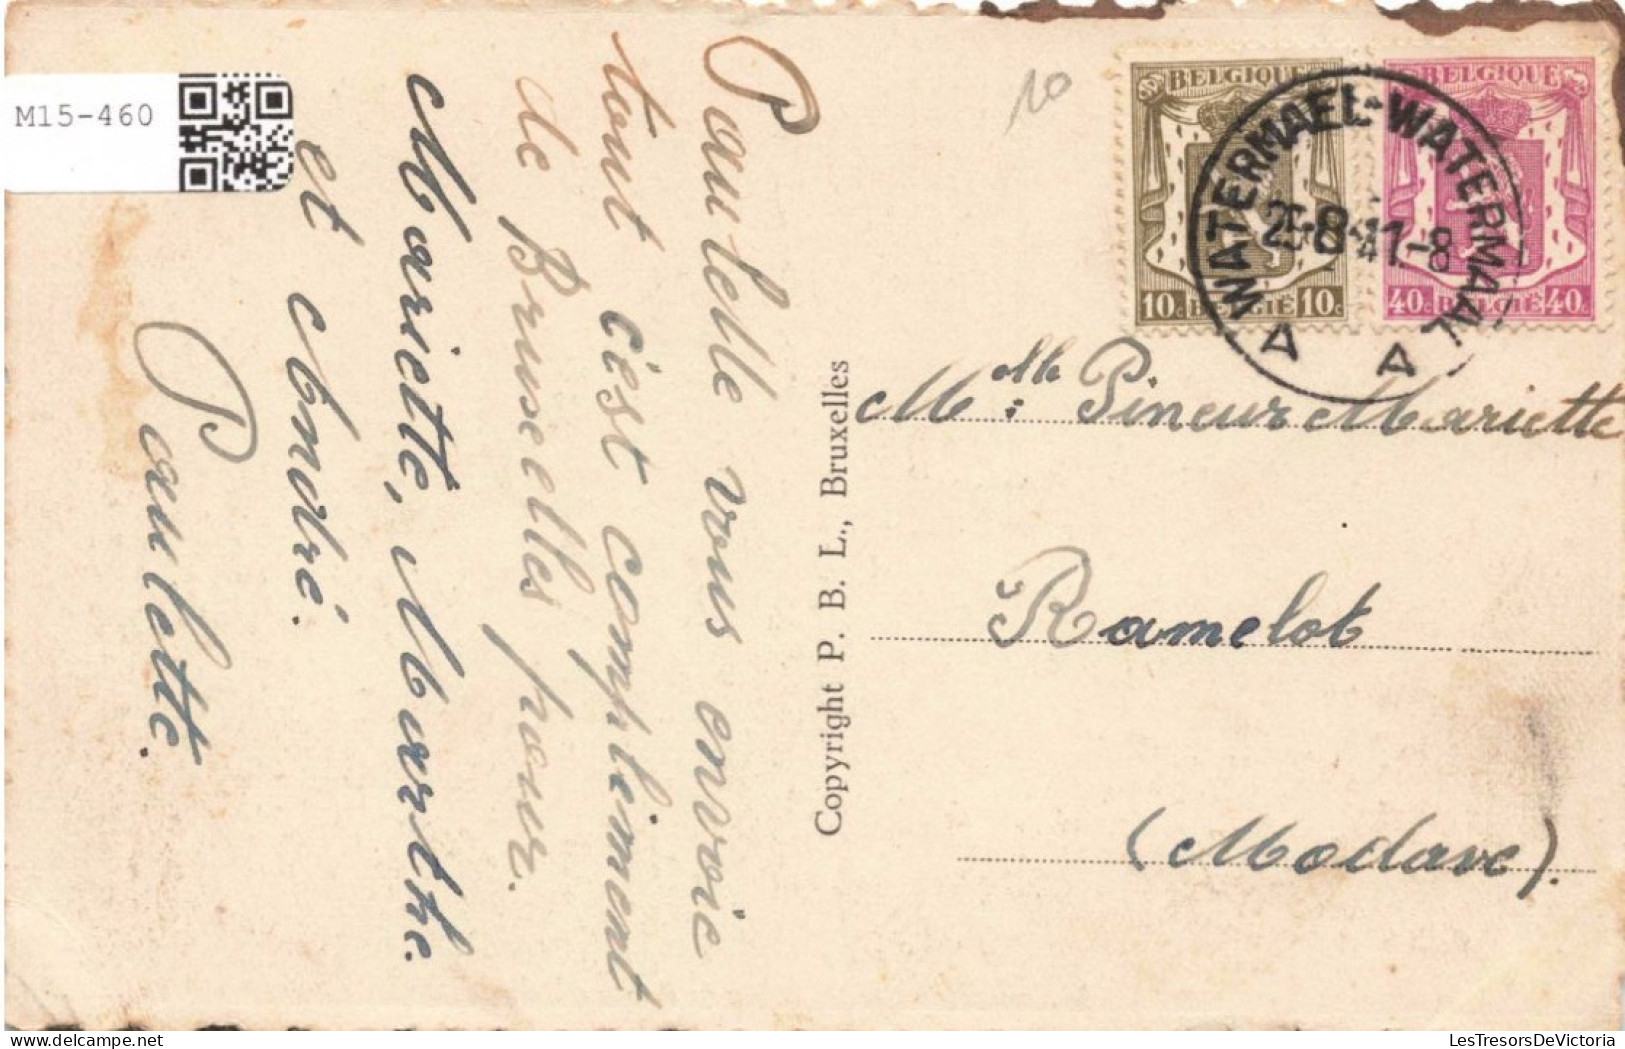 M15-460
Paulette vous envoie
tout c'est compleiment
de Bruxelles pour.
Mariette, Marthe.
et André.
Paulette.
Copyright P. B. L., Bruxelles
10
BELGIQUE
10c BELGIË 10c
BELGIQUE
40c BELGIË 40c
WATERMAEL-WATERMAAL
-8-41-8
A A
Melle: Pineur Mariette
Ramelot
(Modave).
LesTresorsDeVictoria